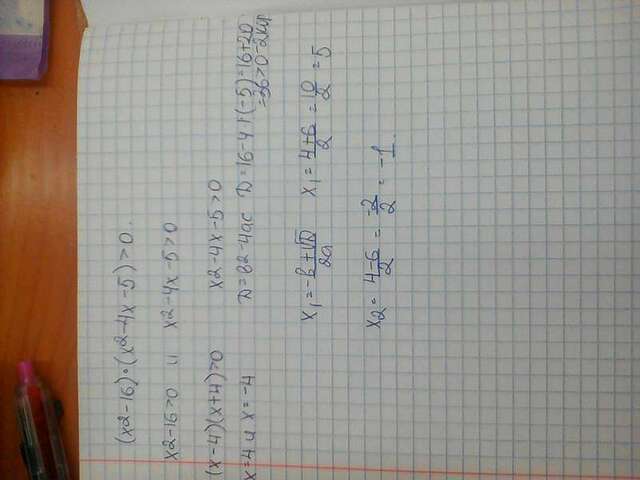 (x2-16)·(x2-4x-5)>0.
x2-16>0 и x2-4x-5>0
(x-4)(x+4)>0 x2-4x-5>0
x=4 и x=-4 D=B2-4ac D=16-4·1·(-5)=16+20
=36>0-2кор
x1=-B+√D/2a x1=4+6/2=10/2=5
x2=4-6/2=-2/2=-1.